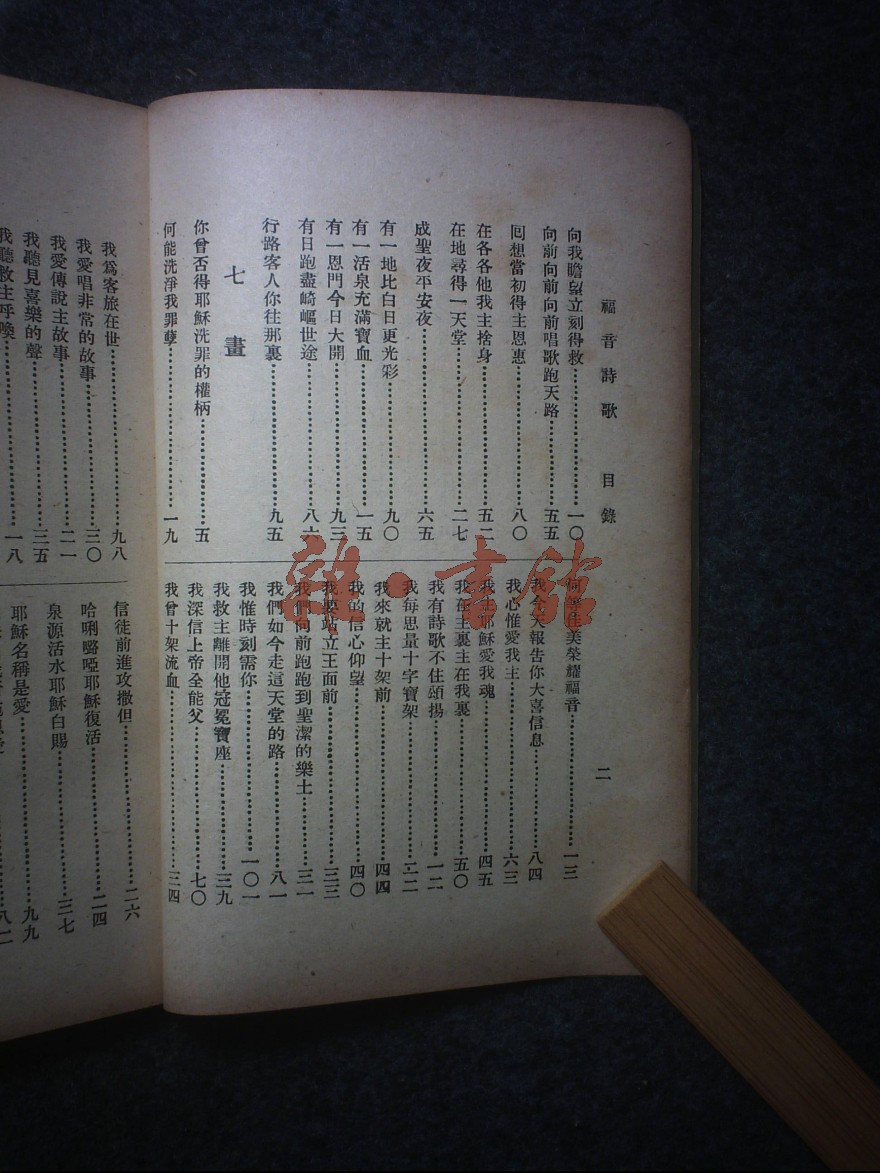 福音詩歌 目錄 二
向我瞻望立刻得救……一〇
向前向前向前唱歌跑天路……五五
囘想當初得主恩惠……八〇
在各各他我主捨身……五二
在地尋得一天堂……二七
成聖夜平安夜……六五
有一地比白日更光彩……九〇
有一活泉充滿寶血……一五
有一恩門今日大開……九三
有日跑盡崎嶇世途……八六
行路客人你往那裏……九五
七畫
你曾否得耶穌洗罪的權柄……五
何能洗淨我罪孽……一九
何等佳美榮耀福音……一三
我今天報告你大喜信息……八四
我心惟愛我主……六三
耶穌愛我魂……四五
我在主裏主在我裏……五〇
我有詩歌不住頌揚……一二
我每思量十字寶架……二二
我來就主十架前……四四
我的信心仰望……四〇
我要站立王面前……三三
我們向前跑跑到聖潔的樂土……三一
我們如今走這天堂的路……八一
我惟時刻需你……一〇一
我救主離開他冠冕寶座……三九
我深信上帝全能父……七〇
我曾十架流血……三四
我爲客旅在世……九八
我愛唱非常的故事……三〇
我愛傳說主故事……二一
我聽見喜樂的聲……三五
我聽救主呼喚……一八
信徒前進攻撒但……二六
哈唎嚕啞耶穌復活……二四
泉源活水耶穌白賜……三七
耶穌名稱是愛……九九
八二
雜·書館